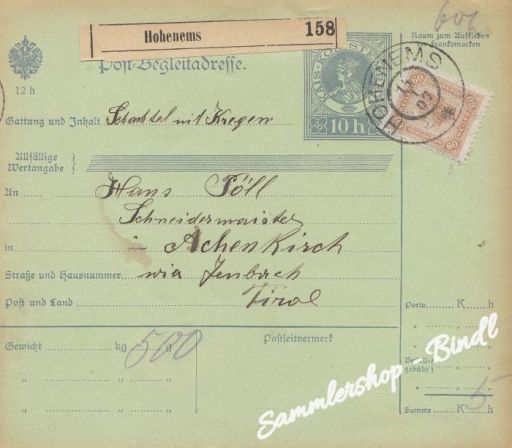 Hohenems 158
60h
Raum zum Aufkleben
Frankomarken
Post-Begleitadresse.
10 h
HOHENEMS
60
12 h
Gattung und Inhalt Schachtel mit Kregen
Allfällige
Wertangabe
An Hans Pöll
Schneidermaister
in Achenkirch
Straße und Hausnummer via Jenbach
Post und Land Tirol
Porto K h
Gewicht kg 500 g
Postleitvermerk
" " "
" " "
gebühr
5
Summe K h
Sammlershop - Bindl